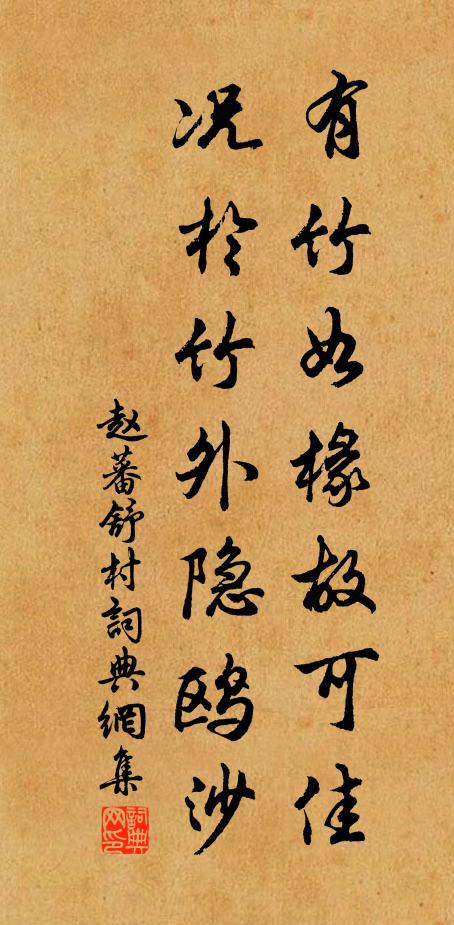 有竹如椽故可佳
况於竹外隐鸥沙
赵蕃舒村詞典網集
詞典网印